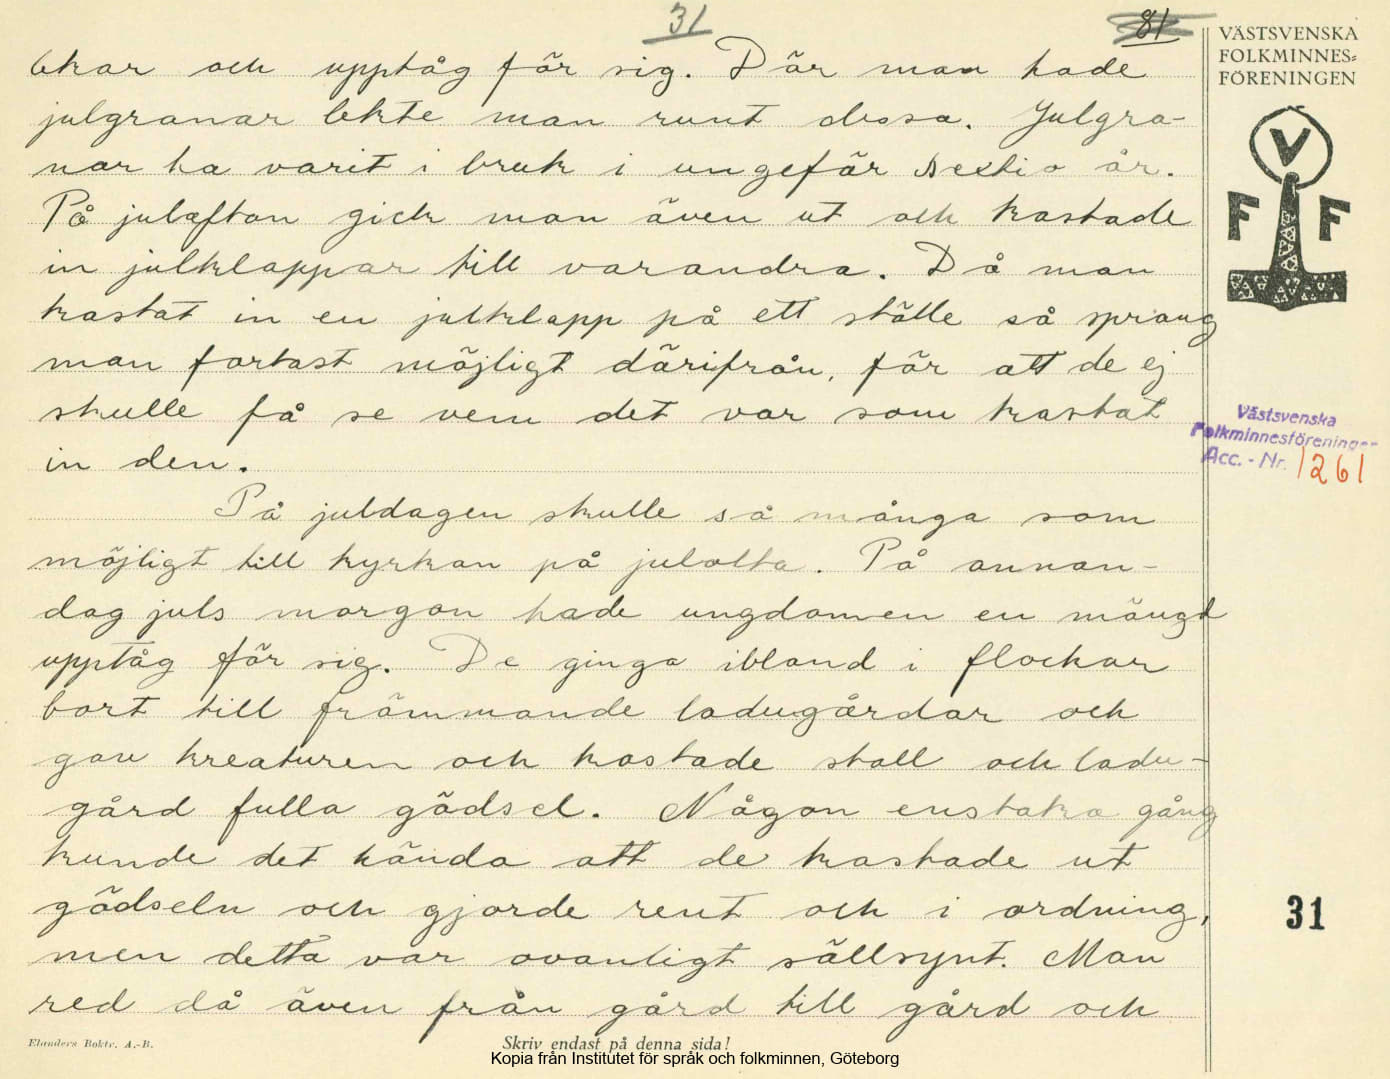 31
81
VÄSTSVENSKA
FOLKMINNES-
FÖRENINGEN
V
F F
lekar och upptåg för sig. Där man hade
julgranar lekte man runt dessa. Julgra-
nar ha varit i bruk i ungefär sextio år.
På julafton gick man även ut och kastade
in julklappar till varandra. Då man
kastat in en julklapp på ett ställe så sprang
man fortast möjligt därifrån, för att de ej
skulle få se vem det var som kastat
in den.
Västsvenska
Folkminnesföreningen
Acc. - Nr. 1261
På juldagen skulle så många som
möjligt till kyrkan på julotta. På annan-
dag juls morgon hade ungdomen en mängd
upptåg för sig. De ginga ibland i flockar
bort till främmande ladugårdar och
gav kreaturen och kastade stall och ladu-
gård fulla gödsel. Någon enstaka gång
kunde det hända att de kastade ut
gödseln och gjorde rent och i ordning,
31
men detta var ovanligt sällsynt. Man
red då även från gård till gård och
Elanders Boktr. A.-B.
Skriv endast på denna sida!
Kopia från Institutet för språk och folkminnen, Göteborg